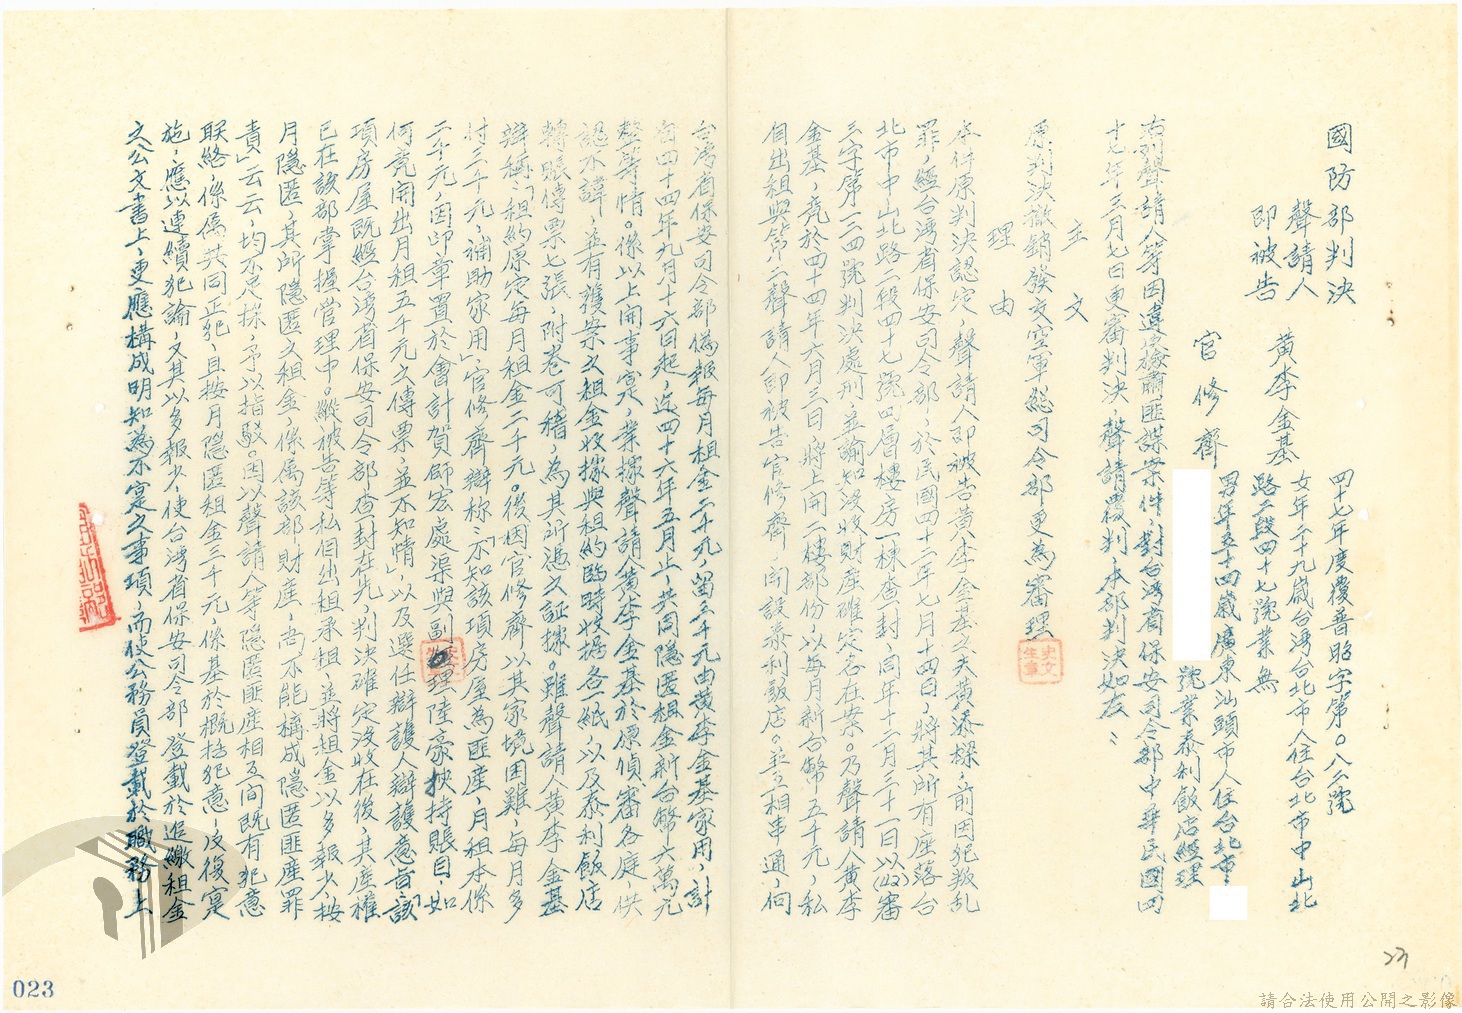 國防部判決
四十七年度覆普昭字第〇八二號
聲請人
即被告
黃李金基
女年二十九歲台灣台北市人住台北市中山北
路二段四十七號業無
官修齊
男年五十四歲廣東汕頭市人住台北市
號業泰利飯店經理
右列聲請人等因違反檢肅匪諜案件，對台灣省保安司令部中華民國四
十七年三月七日更審判決，聲請覆判，本部判決如左：
主文
原判決撤銷發交空軍總司令部更為審理
理由
本件原判決認定，聲請人即被告黃李金基之夫黃添樑，前因犯叛亂
罪，經台灣省保安司令部，於民國四十二年七月十四日，將其所有座落台
北市中山北路二段四十七號四層樓房一棟查封，同年十二月三十一日以(42)審
三字第一二四號判決處刑並諭知沒收財產確定各在案。乃聲請人黃李
金基，竟於四十四年六月三日將上開二樓部份以每月新台幣五千元，私
自出租與第二聲請人即被告官修齊，開設泰利飯店。並互相串通，向
台灣省保安司令部偽報每月租金二千元，留三千元由黃李金基家用，計
自四十四年九月十六日起，迄四十六年五月止，共同隱匿租金新台幣六萬元
整等情。係以上開事實，業據聲請人黃李金基於原偵審各庭，供
認不諱，並有獲案之租金收據與租約臨時收據各紙，以及泰利飯店
轉賬傳票七張，附卷可稽，為其所憑之証據。雖聲請人黃李金基
辯稱：「租約原定每月租金二千元。後因官修齊以其家境困難，每月多
付三千元，補助家用」，官修齊辯稱：「不知該項房屋為匪產，月租本係
二千元，因印章置於會計賀師宏處渠與副經理陸豪挾持賬目，如
何竟開出月租五千元之傳票，並不知情」，以及選任辯護人辯護意旨：「該
項房屋既經台灣省保安司令部查封在先，判決確定沒收在後，其產權
已在該部掌握管理中。縱被告等私自出租承租，並將租金以多報少，按
月隱匿，其所隱匿之租金，係屬該部財產，尚不能構成隱匿匪產罪
責」云云，均不足採，予以指駁。因以聲請人等隱匿匪產相互間既有犯意
联絡，係屬共同正犯，且按月隱匿租金三千元，係基於概括犯意，反復實
施，應以連續犯論，又其以多報少，使台灣省保安司令部登載於追繳租金
之公文書上，更應構成明知為不實之事項，而使公務員登載於職務上
史文生章
023
請合法使用公開之影像